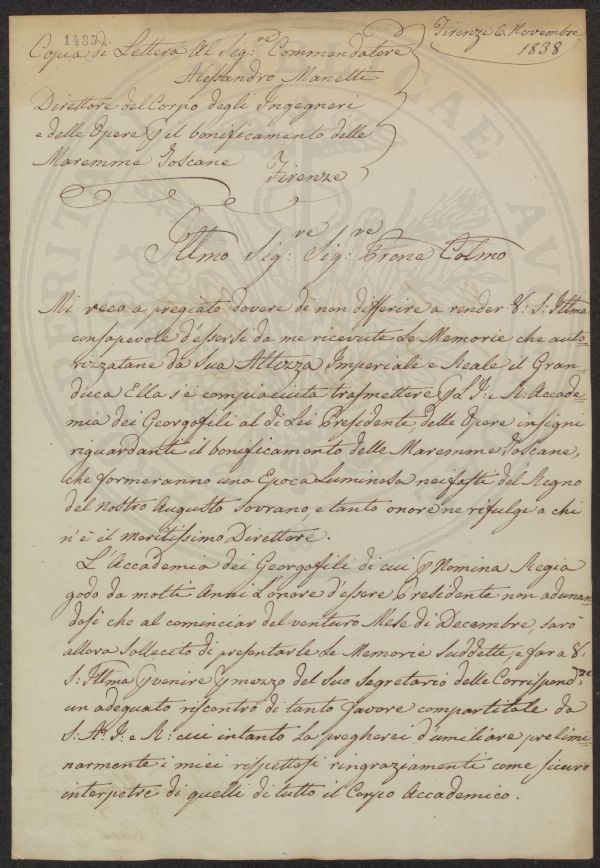 1485
Firenze 6. Novembre
1838
Copia di Lettera Al Sig:re Commendatore
Alessandro Manetti
Direttore del Corpo degli Ingegneri
e delle Opere p il bonificamento delle
Maremme Toscane
Firenze
Illmo Sig:re Sig:re Prone Colmo
Mi reco a pregiato dovere di non differire a render V: S: Illma
consapevole d'essersi da me ricevute Le Memorie che auto-
rizzatane da Sua Altezza Imperiale e Reale il Gran-
duca Ella s'è compiaciuta trasmettere p L'I: R: Accade-
mia dei Georgofili al di Lei Presidente, delle Opere insigni
riguardanti il bonificamento delle Maremme Toscane,
che formeranno una Epoca Luminosa nei fasti del Regno
del Nostro Augusto Sovrano, e tanto onore ne rifulge a chi
n'è il meritissimo Direttore.
L'Accademia dei Georgofili di cui p Nomina Regia
godo da molti Anni L'onore d'essere Presidente non adunan-
dosi che al cominciar del venturo Mese di Decembre, sarò
allora sollecito di presentarle Le Memorie suddette, e farà V:
S: Illma pvenire p mezzo del suo Segretario delle Corrispondze
un adeguato riscontro di tanto favore compartitole da
S: A: I: e R: cui intanto La pregherei d'umiliare prelimi-
narmente i miei rispettosi ringraziamenti come sicuro
interpetre di quelli di tutto il Corpo Accademico.